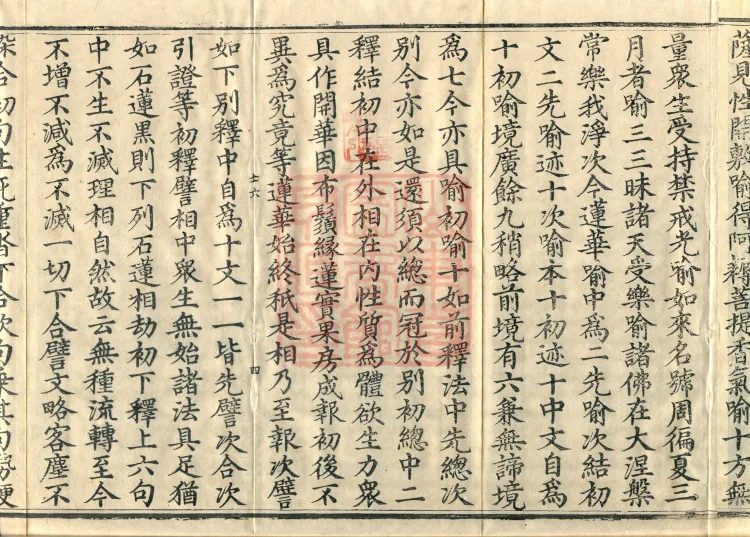 蔭見性開敷喻得阿耨菩提香氣喻十方無
量衆生受持禁戒光喻如來名號周徧夏三
月者喻三三昧諸天受樂喻諸佛在大涅槃
常樂我淨次今蓮華喻中爲二先喻次結初
文二先喻迹十次喻本十初迹十中文自爲
十初喻境廣餘九稍略前境有六兼無諦境
爲七今亦具喻初喻十如前釋法中先總次
別今亦如是還須以總而冠於別初總中二
釋結初中在外相在內性質爲體欲生力衆
具作開華因布鬚緣蓮實果房成報初後不
異爲究竟等蓮華始終秖是相乃至報次譬
十六
四
如下別釋中自爲十文一一皆先譬次合次
引證等初釋譬相中衆生無始諸法具足猶
如石蓮黑則下列石蓮相劫初下釋上六句
中不生不滅理相自然故云無種流轉至今
不增不減爲不滅一切下合譬文略客塵不